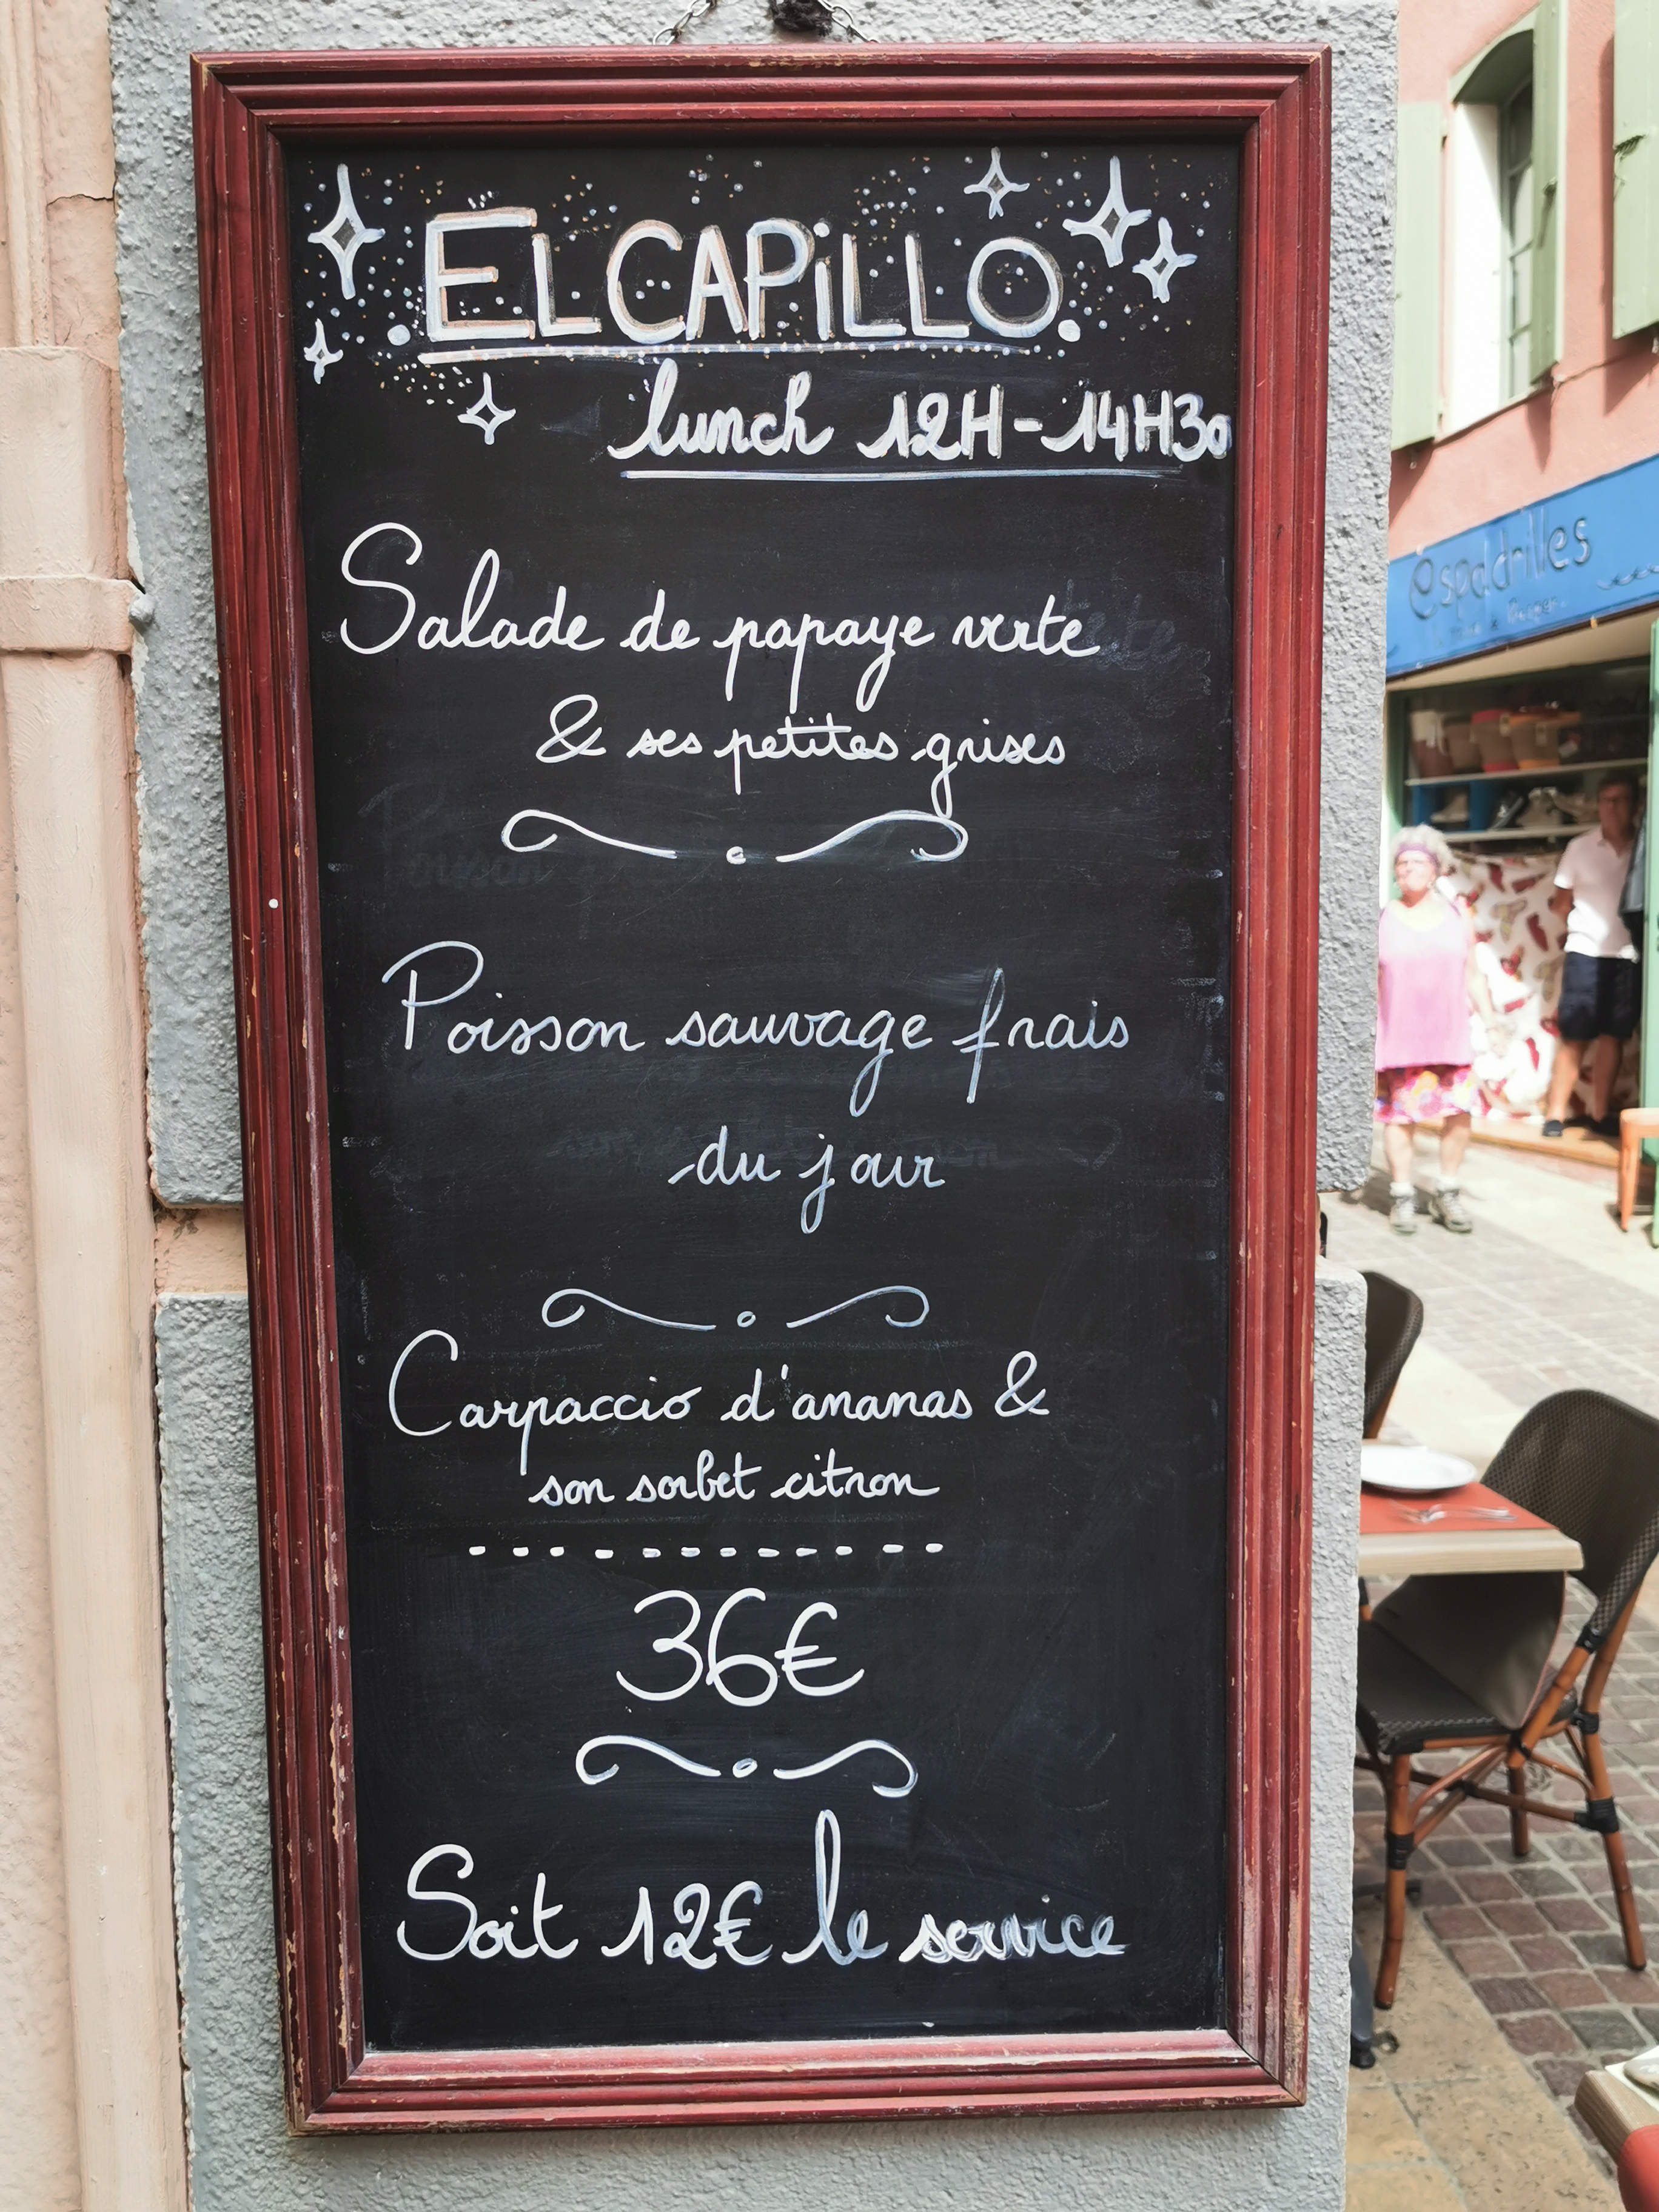 ELCAPiLLO
lunch 12H-14H30
Salade de papaye verte
& ses petites grises
Poisson sauvage frais
du jour
Carpaccio d'ananas &
son sorbet citron
36€
Soit 12€ le service
espadrilles